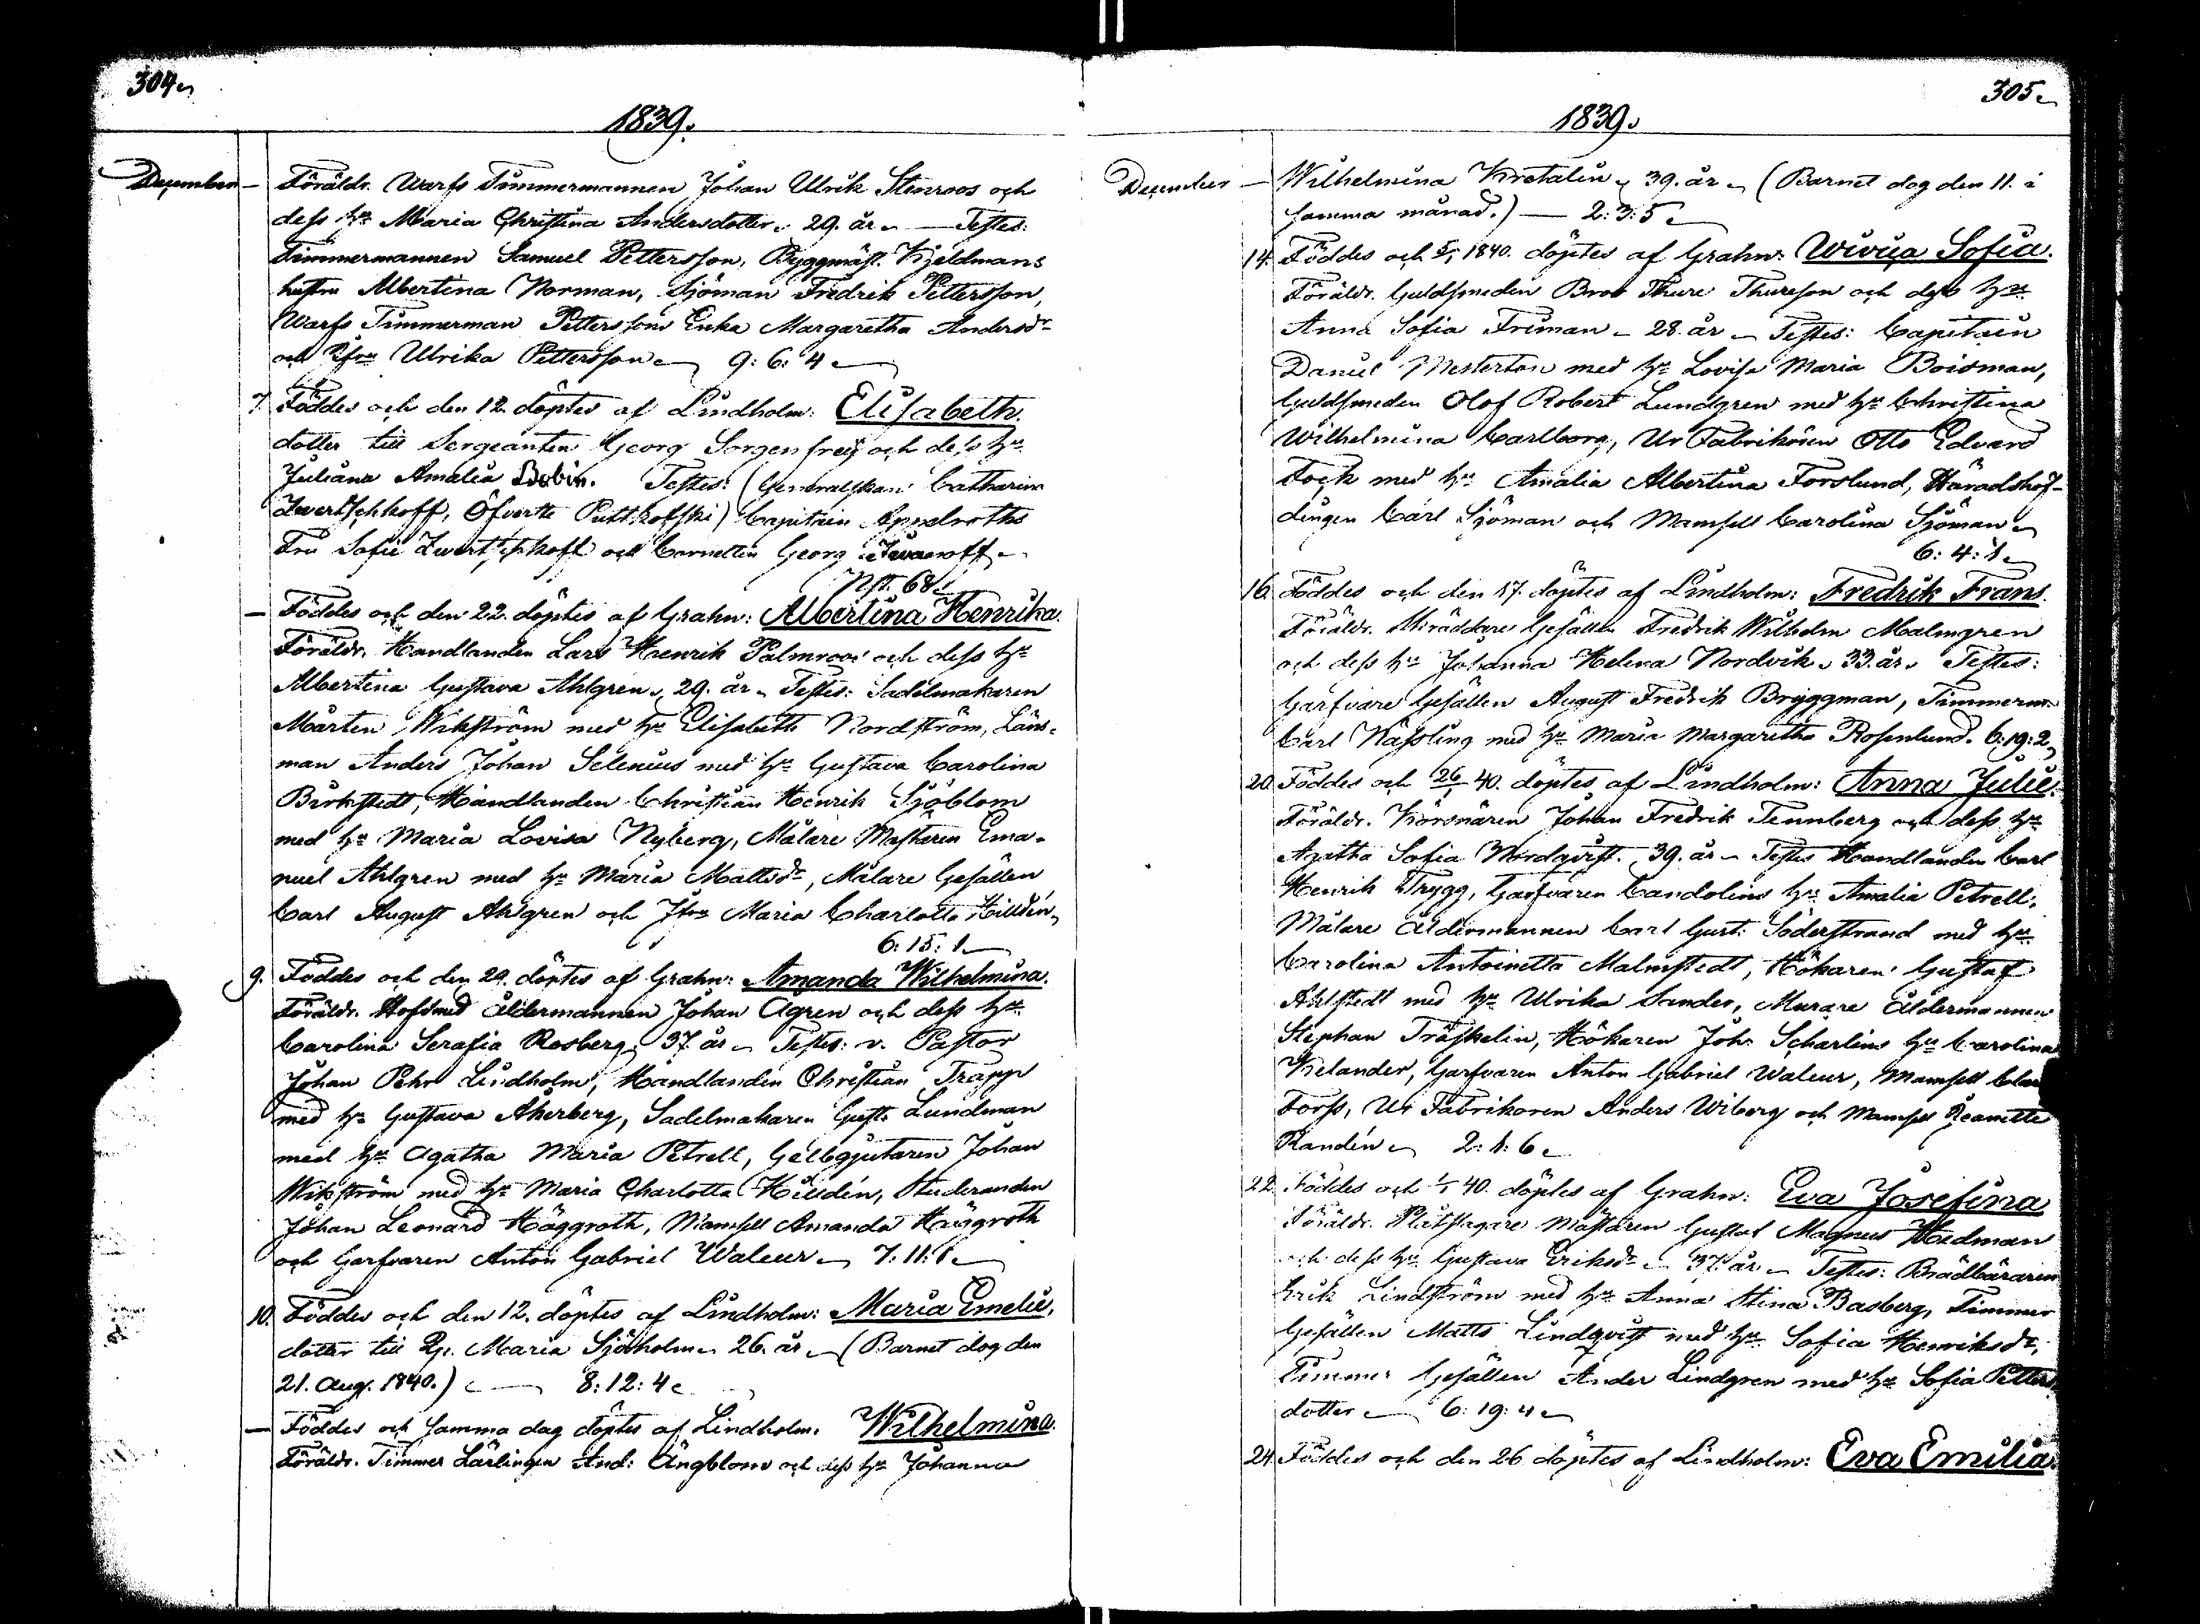 304.
1839.
December —
Föräldr. Warfs Timmermannen Johan Ulrik Stenroos och
dess hu Maria Christina Andersdotter, 29. år. — Testes:
Timmermannen Samuel Pettersson, Byggmäst. Kjeldmans
hustru Albertina Norman, Sjöman Fredrik Pettersson,
Warfs Timmerman Petterssons Enka Margaretha Andersdr
och Jfru Ulrika Pettersson. 9: 6: 4
7. Föddes och den 12. döptes af Lindholm: Elisabeth,
dotter till Sergeanten Georg Sorgenfrey och dess hu
Juliana Amalia Bobin. Testes: (Generalskan Catharina
Zwertschkoff, Öfverste Putthofski) Capitain Appelroths
Fru Sofie Zwertschkoff och Cornetten Georg Iwanoff.
Nst. 68.
— Föddes och den 22. döptes af Grahn: Albertina Henrika.
Föräldr. Handlanden Lars Henrik Palmroos och dess hu
Albertina Gustava Ahlgren, 29. år. Testes: Sadelmakaren
Mårten Wikström med hu Elisabeth Nordström, Läns-
man Anders Johan Selenius med hu Gustava Carolina
Birkstedt, Handlanden Christian Henrik Sjöblom
med hu Maria Lovisa Nyberg, Målare Mästaren Ema-
nuel Ahlgren med hu Maria Mattsdr, Målare Gesällen
Carl August Ahlgren och Jfru Maria Charlotta Hilldén,
6: 15: 1
9. Föddes och den 29. döptes af Grahn: Amanda Wilhelmina.
Föräldr. Hofsmed Åldermannen Johan Ågren och dess hu
Carolina Serafia Rosberg, 37 år. Testes: v. Pastor
Johan Pehr Lindholm, Handlanden Christian Trapp
med hu Gustava Åkerberg, Sadelmakaren Gust. Lundman
med hu Agatha Maria Petrell, Gelbgjutaren Johan
Wikström med hu Maria Charlotta Hilldén, Studeranden
Johan Leonard Häggroth, Mamsell Amanda Häggroth
och Garfvaren Anton Gabriel Waleur. 7: 11: 1
10. Föddes och den 12. döptes af Lindholm: Maria Emelie,
dotter till Pig. Maria Sjöholm. 26. år. (Barnet dog den
21. Aug. 1840.) — 8: 12: 4
— Föddes och samma dag döptes af Lindholm. Wilhelmina.
Föräldr. Timmer Lärlingen And: Ängblom och dess hu Johanna
305.
1839.
December —
Wilhelmina Kretalin, 39. år. (Barnet dog den 11. i
samma månad.) — 2: 3: 5
14. Föddes och 5/1 1840. döptes af Grahn: Wivica Sofia.
Föräldr. Guldsmeden Bror Thure Thureson och dess hu
Anna Sofia Friman — 28. år. Testes: Capitain
Daniel Mesterton med hu Lovisa Maria Boisman,
Guldsmeden Olof Robert Lundgren med hu Christina
Wilhelmina Carlborg, Ur Fabrikören Otto Edvard
Fock med hu Amalia Albertina Forslund, Häradshöf-
dingen Carl Sjöman och Mamsell Carolina Sjöman
6: 4: 1
16. Föddes och den 17. döptes af Lindholm: Fredrik Frans.
Föräldr. Skräddare Gesällen Fredrik Wilhelm Malmgren
och dess hu Johanna Helena Nordvik, 33. år. Testes:
Garfvare Gesällen August Fredrik Bryggman, Timmerm.
Carl Hässling med hu Maria Margaretha Rosenlund. 6: 19: 2
20. Föddes och 26/1 40. döptes af Lindholm: Anna Julie.
Föräldr. Körsnären Johan Fredrik Tennberg och dess hu
Agatha Sofia Nordqvist. 39. år. Testes Handlanden Carl
Henrik Trygg, Garfvaren Candolins hu Amalia Petrell,
Målare Åldermannen Carl Gust. Söderstrand med hu
Carolina Antoinetta Malmstedt, Hökaren Gustaf
Ahlstedt med hu Ulrika Sander, Murare Åldermannen
Stephan Träskelin, Hökaren Joh. Scharlins hu Carolina
Kelander, Garfvaren Anton Gabriel Waleur, Mamsell
Forss, Ur Fabrikören Anders Wiberg och Mamsell Jeanette
Randén. 2: 1: 6
22. Föddes och 1/1 40. döptes af Grahn: Eva Josefina
Föräldr. Plåtslagare Mästaren Gustaf Magnus Hedman
och dess hu Gustava Eriksdr. 37. år. Testes: Brädbäraren
Erik Lindström med hu Anna Stina Basberg, Timmer
Gesällen Matts Lindqvist med hu Sofia Henriksdr,
Timmer Gesällen Ander Lindgren med hu Sofia Petters
dotter — 6: 19: 4
24. Föddes och den 26 döptes af Lindholm: Eva Emilia.